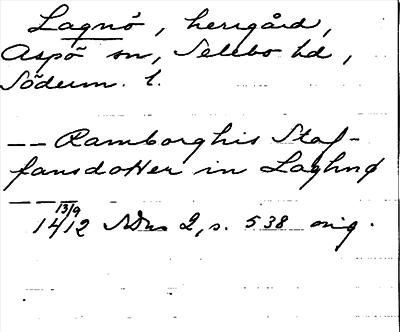 Lagnö, herrgård,
Aspö sn, Selebo hd,
Söderm. l.
—— Ramborghis Staf-
fansdotter in Laghnø
———
13/9
1412 SDns 2, s. 538 orig.